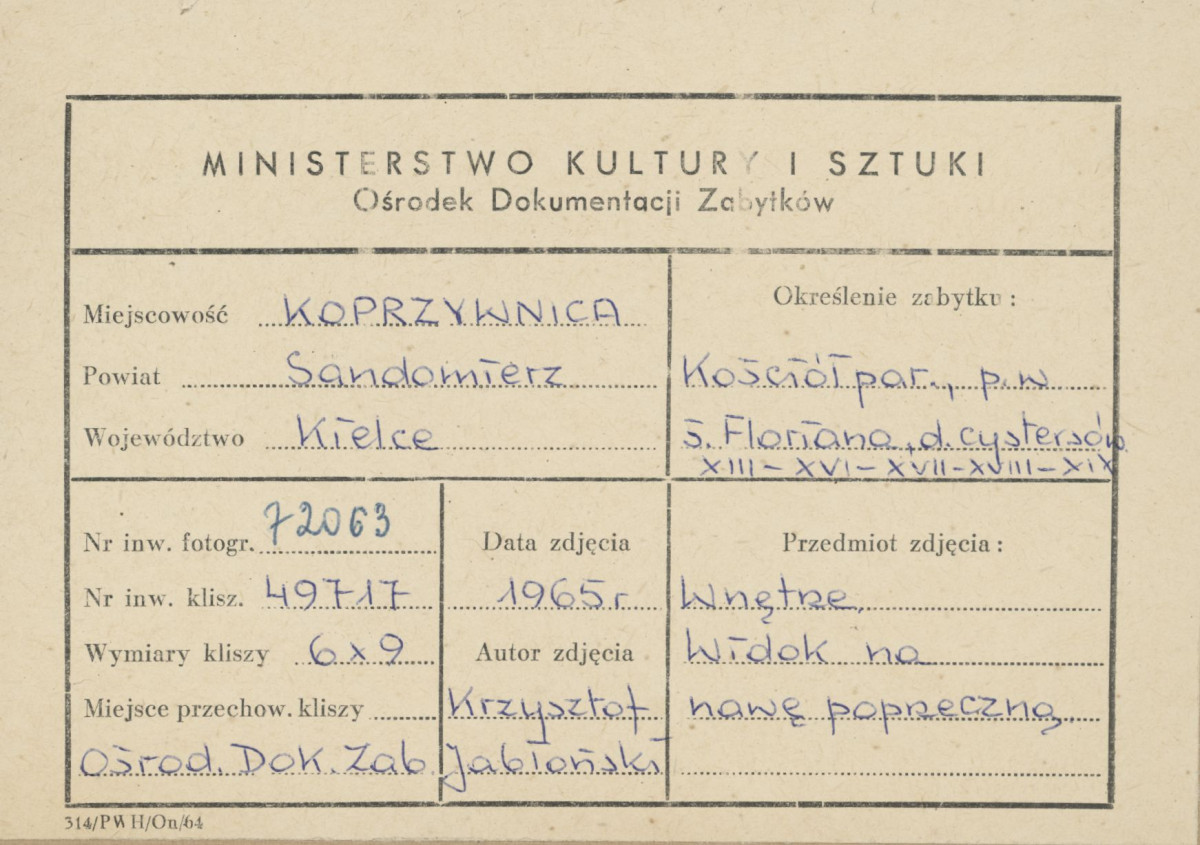 MINISTERSTWO KULTURY I SZTUKI
Ośrodek Dokumentacji Zabytków
Miejscowość KOPRZYWNICA
Powiat Sandomierz
Województwo Kielce
Określenie zabytku:
Kościół par., p.w
ś. Floriana, d. cystersów.
XIII – XVI – XVII – XVIII – XIX
Nr inw. fotogr. 72063
Nr inw. klisz. 49717
Wymiary kliszy 6x9
Miejsce przechow. kliszy
Ośrod. Dok. Zab
Data zdjęcia
1965r
Autor zdjęcia
Krzysztof
Jabłoński
Przedmiot zdjęcia:
Wnętrze,
Widok na
nawę poprzeczną.
314/PWH/On/64